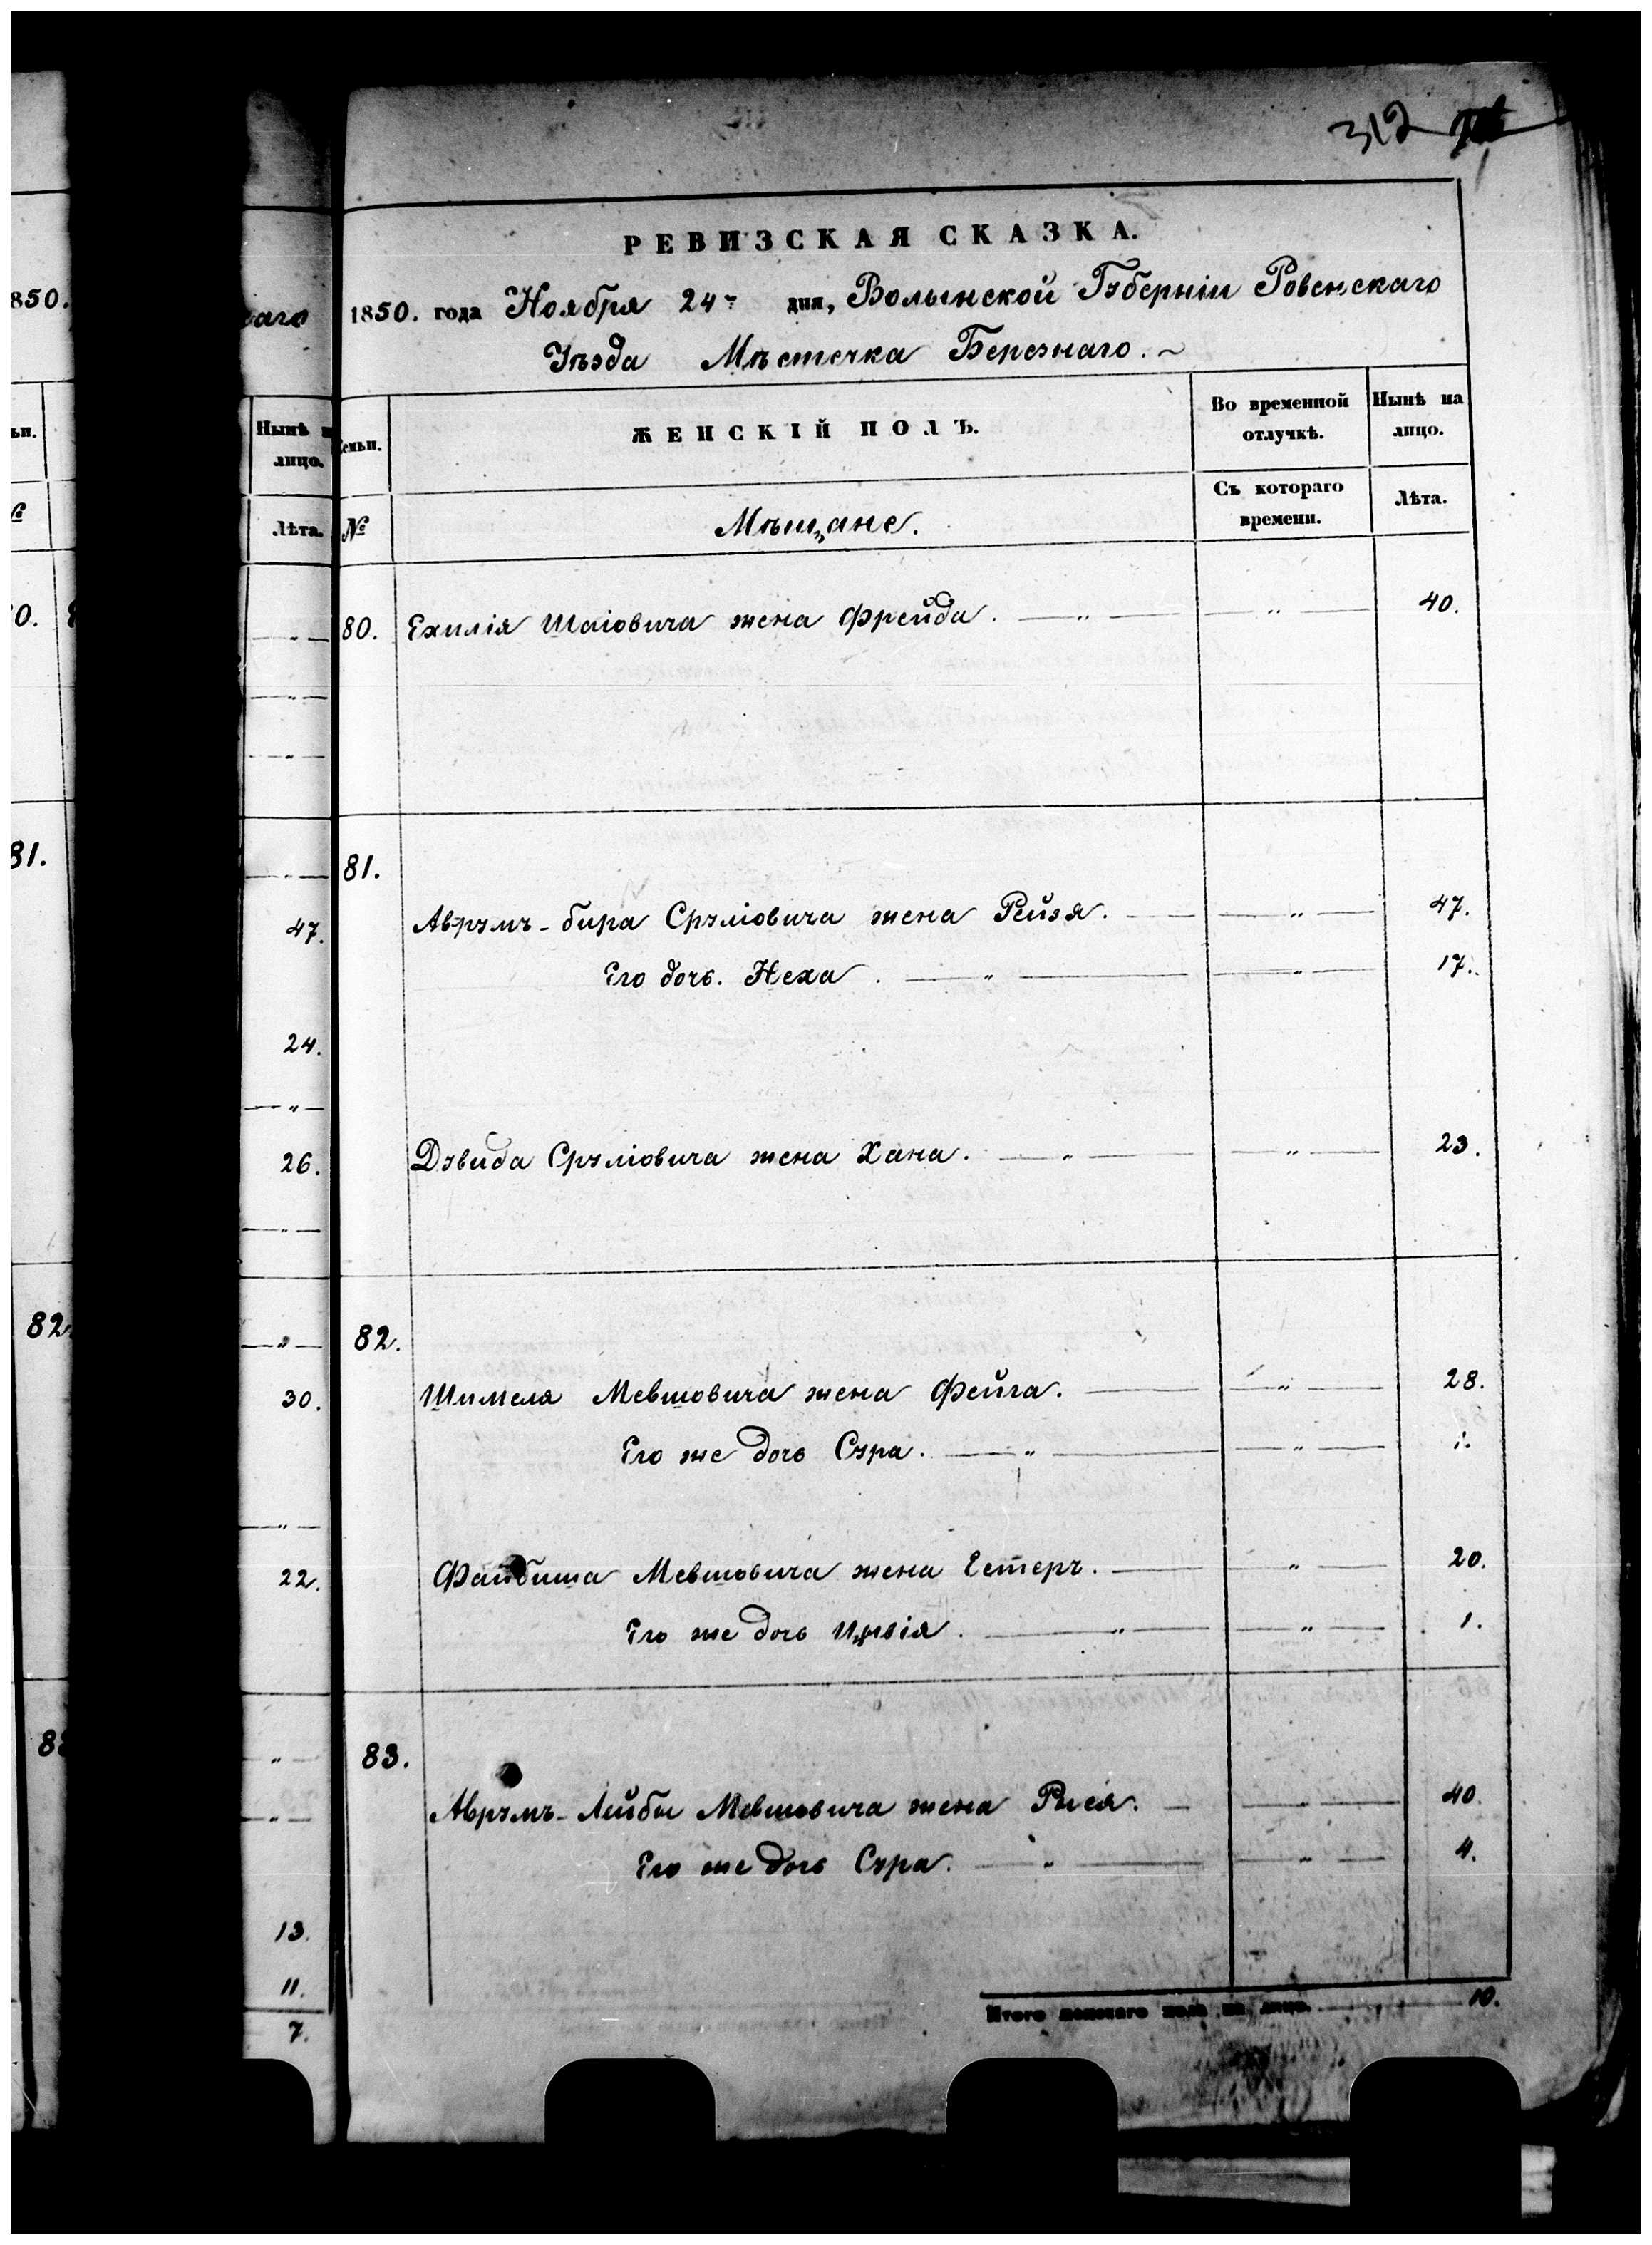 312
850.
ьи.
№
0.
81.
82
8
аго
Нынѣ н
лицо.
Лѣта.
47.
24.
26.
30.
22.
13.
11.
7.
РЕВИЗСКАЯ СКАЗКА.
1850. года Ноября 24го дня, Волынской Губерніи Ровенскаго
Уѣзда Мѣстечка Березнаго.
Семьи. ЖЕНСКІЙ ПОЛЪ. Во временной отлучкѣ. Нынѣ на лицо.
№ Мѣщане. Съ котораго времени. Лѣта.
80. Ехилія Шаіовича жена Фрейда. — „ — — „ — 40.
81.
Аврумъ-бира Сруліовича жена Рейзя. — — „ — 47.
Его дочь. Неха. — „ — — „ — 17.
Дувида Сруліовича жена Хана. — „ — — „ — 23.
82.
Шимеля Мевшовича жена Фейга. — — „ — 28.
Его же дочь Сура. — „ — — „ — 1.
Файбиша Мевшовича жена Естеръ. — — „ — 20.
Его же дочь Цивія. — „ — — „ — 1.
83.
Аврумъ-Лейбы Мевшовича жена Рися. — — „ — 40.
Его же дочь Сура. — „ — — „ — 4.
Итого женскаго пола на лицо. 10.